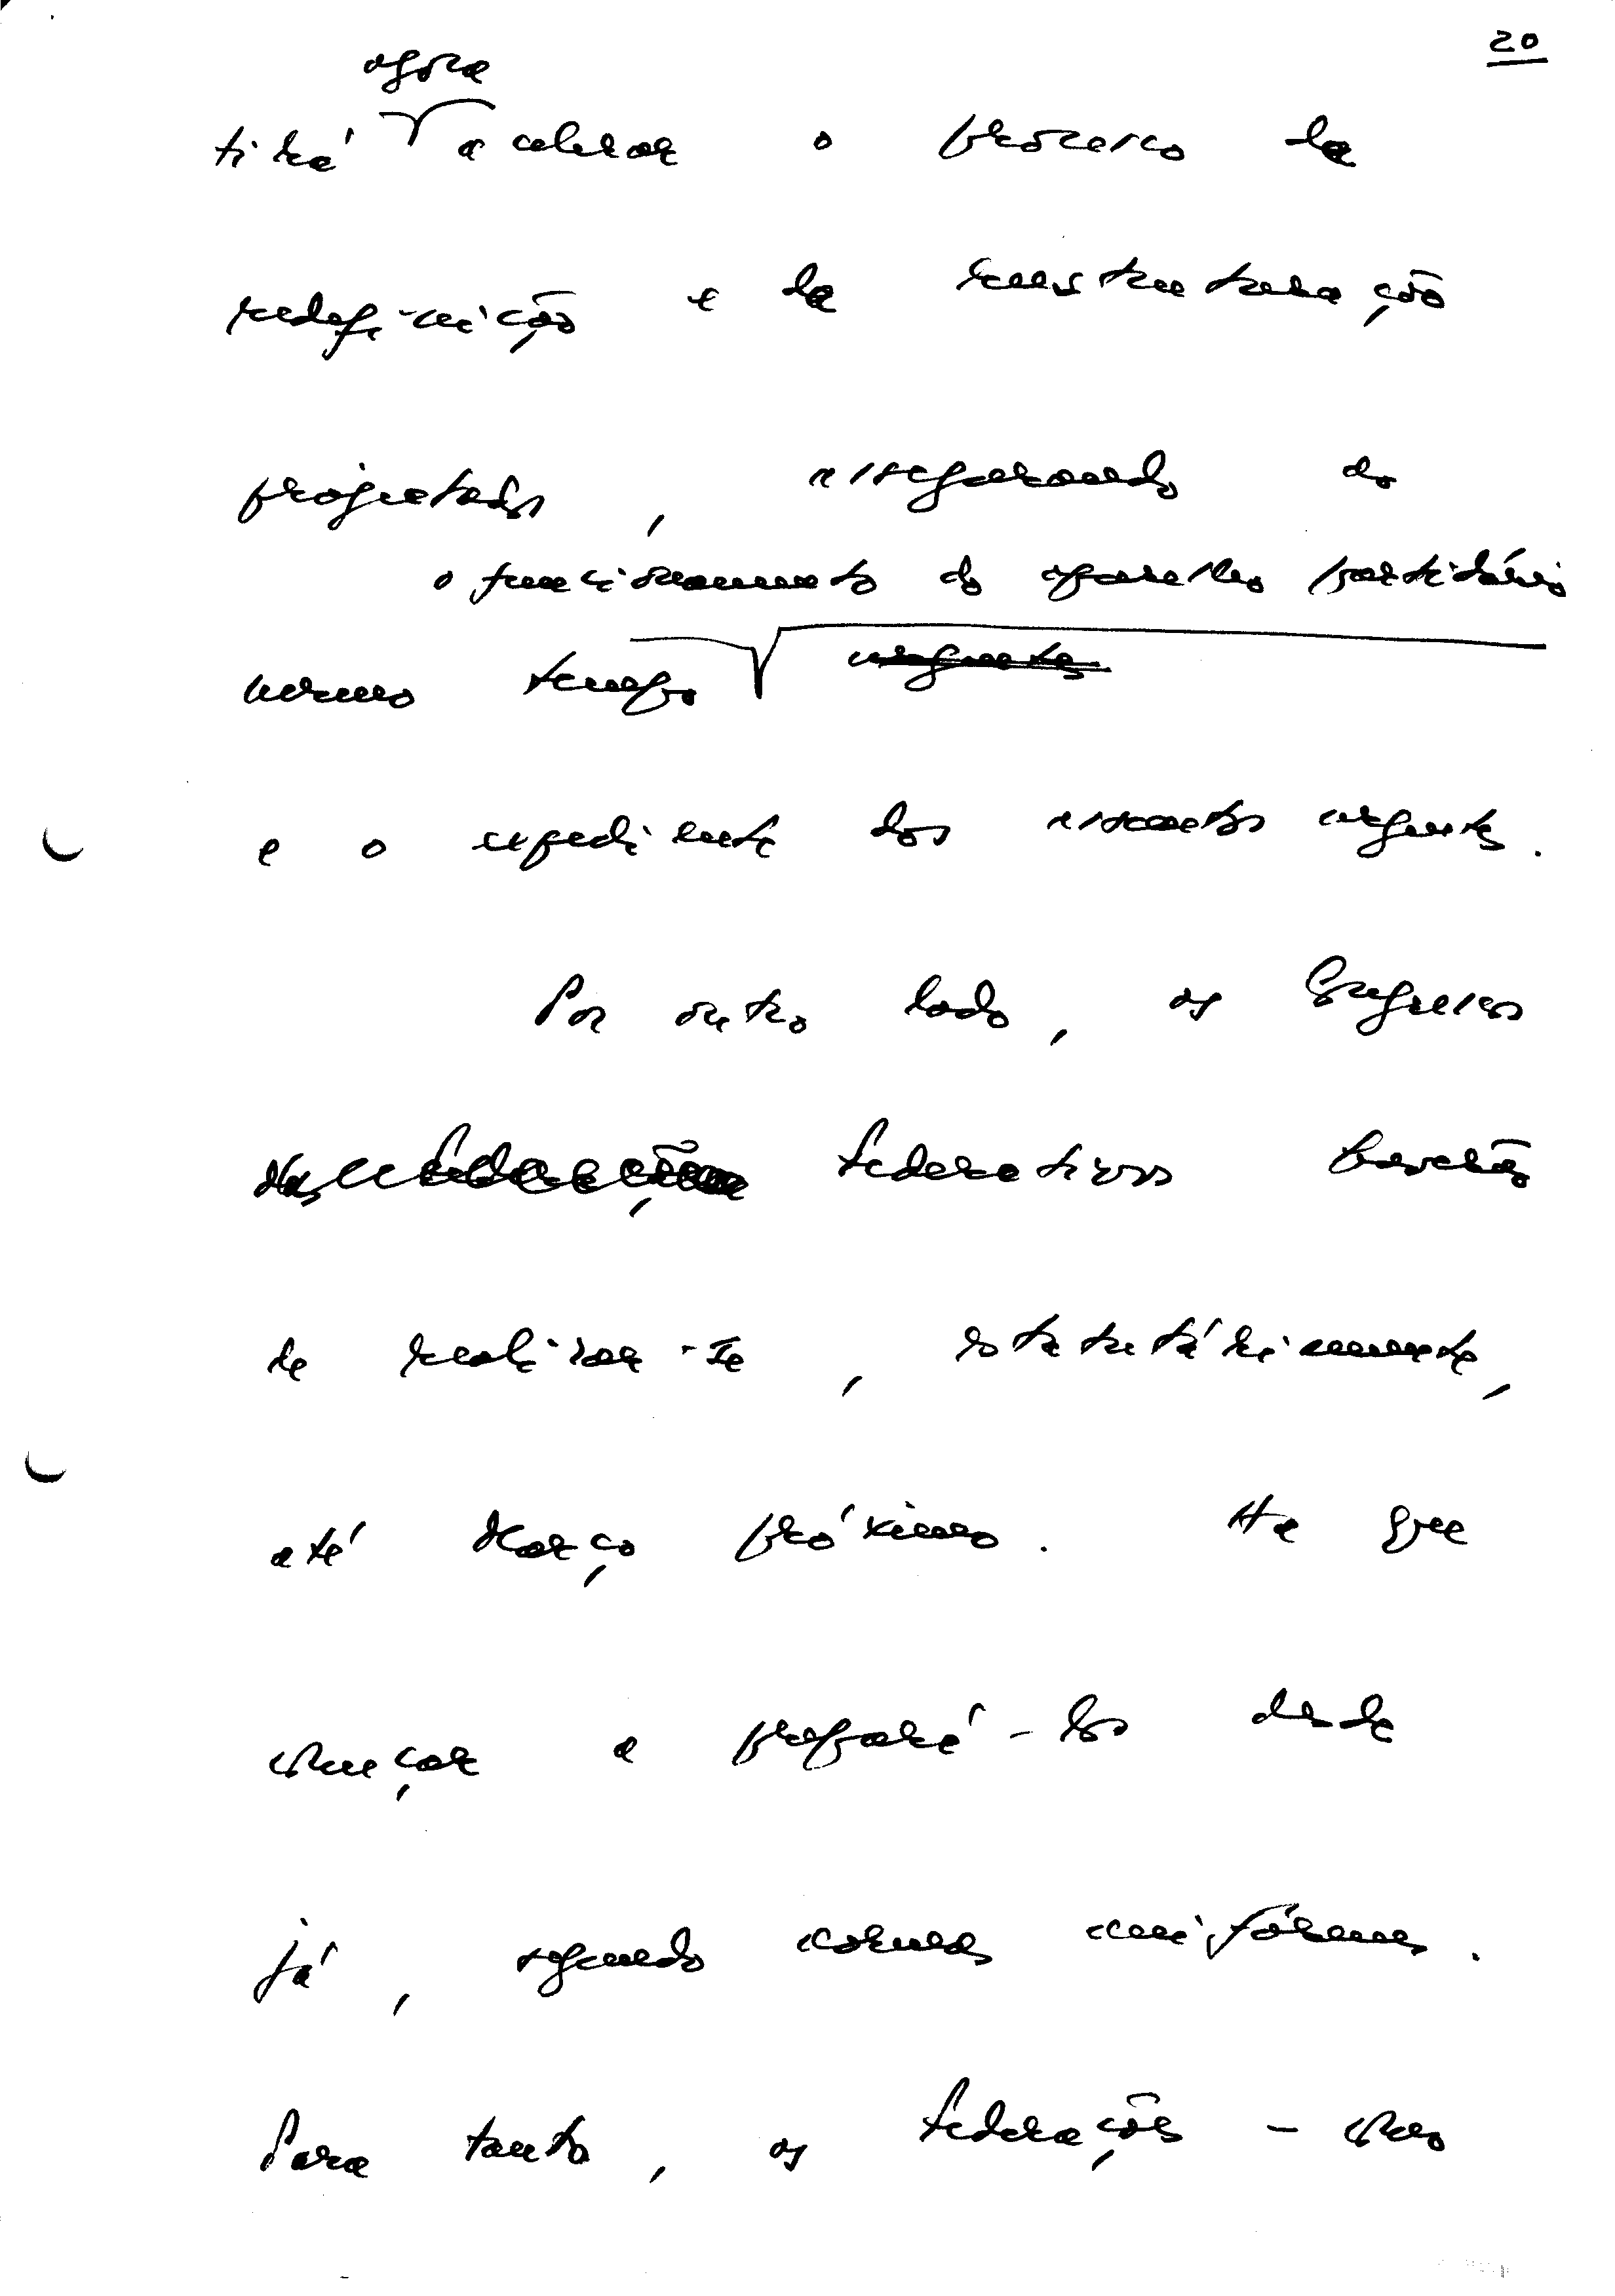 20
agora
tirá acelerar o processo da
redefinição e da reestruturação
projetadas, assegurando ao
o funcionamento do aparelho partidário
mesmo tempo urgentes
e o expediente dos assuntos urgentes.
Por outro lado, os Congressos
Federativos haverão
de realizar-se, estatutáriamente,
até Março próximo. Ha que
começar a prepará-los desde
já, segundo normas uniformes.
Para tanto, as Federações - como